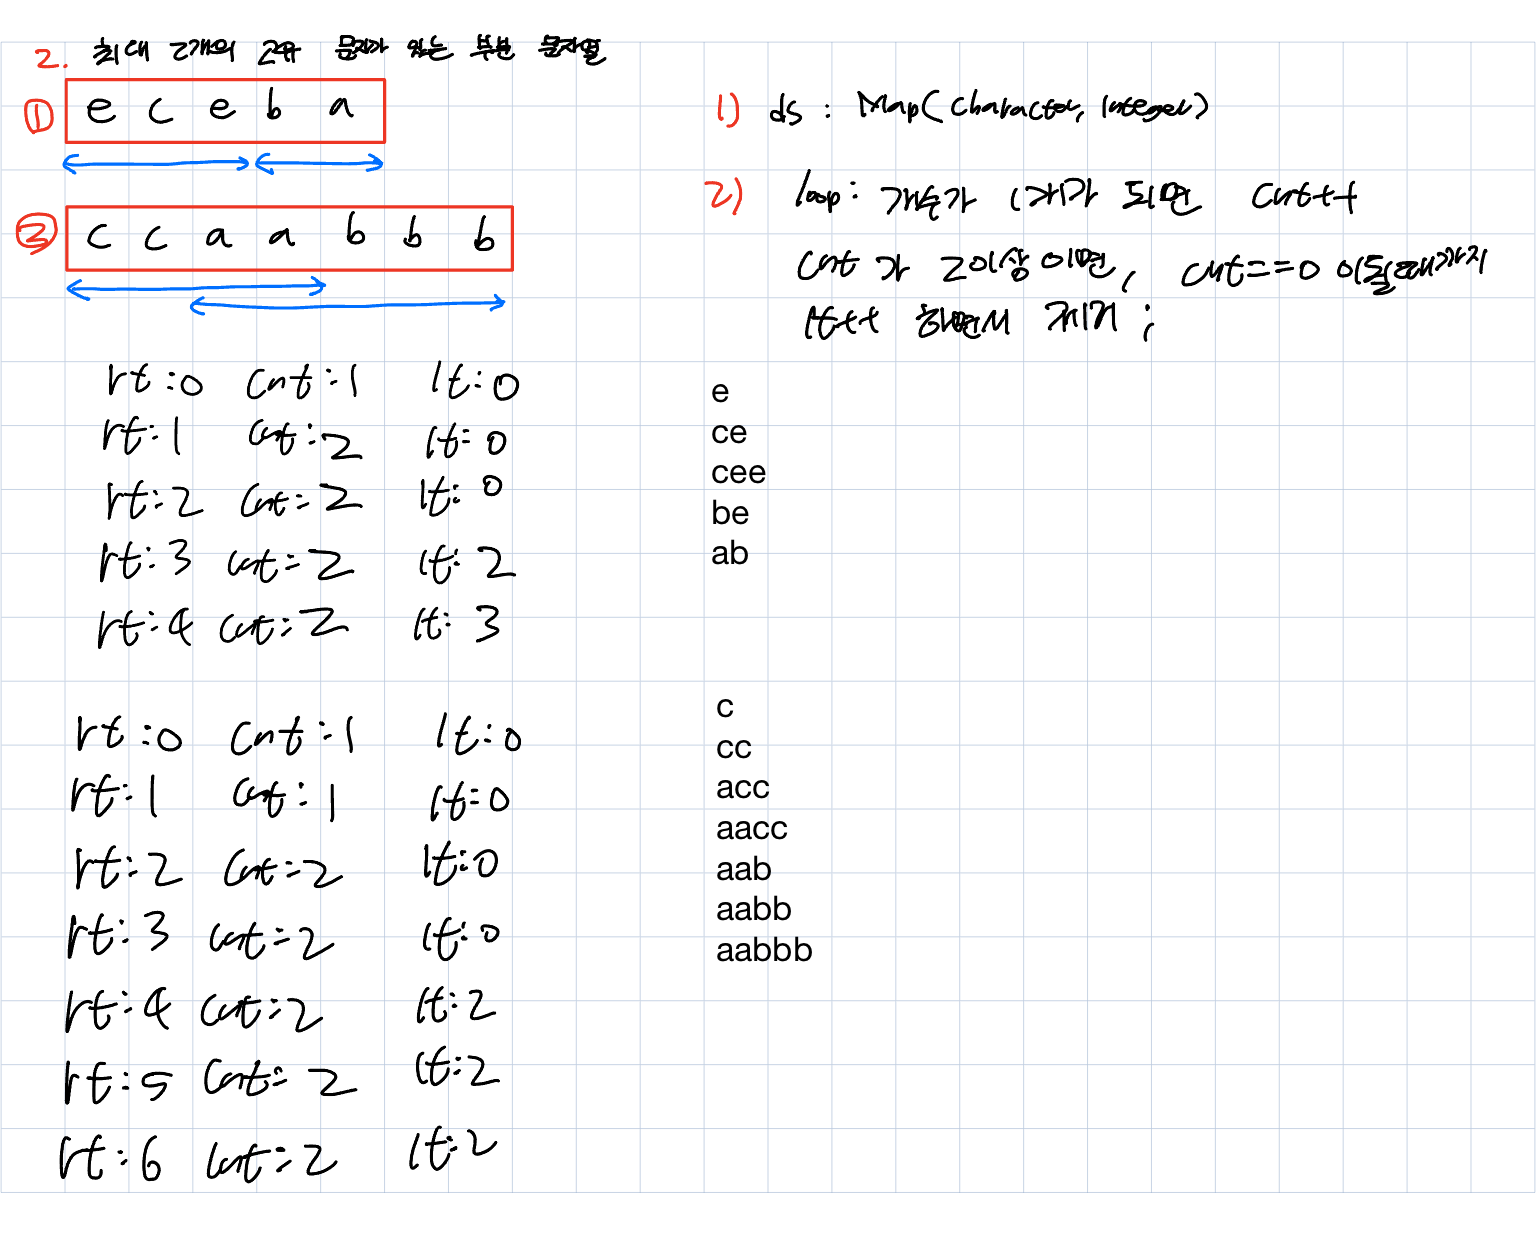 2. 최대 2개의 고유 문자가 있는 부분 문자열
① e c e b a
② c c a a b b b
rt:0 cnt:1 lt:0
rt:1 cnt:2 lt:0
rt:2 cnt=2 lt:0
rt:3 cnt=2 lt:2
rt:4 cnt=2 lt:3
rt:0 cnt:1 lt:0
rt:1 cnt:1 lt=0
rt:2 cnt=2 lt:0
rt:3 cnt=2 lt:0
rt:4 cnt=2 lt:2
rt:5 cnt=2 lt:2
rt:6 cnt=2 lt:2
1) ds : Map(Character, Integer)
2) loop: 개수가 1개가 되면 cnt++
cnt가 2이상이면, cnt==0 이될때까지
lt++ 하면서 제거;
e
ce
cee
be
ab
c
cc
acc
aacc
aab
aabb
aabbb